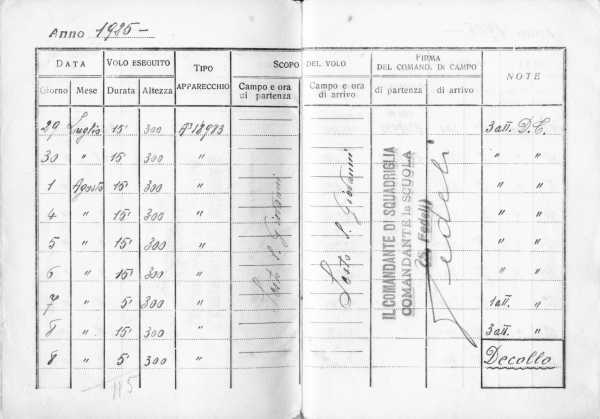 Anno 1925-
DATA VOLO ESEGUITO TIPO APPARECCHIO SCOPO DEL VOLO FIRMA DEL COMAND. DI CAMPO NOTE
Giorno Mese Durata Altezza Campo e ora di partenza Campo e ora di arrivo di partenza di arrivo
29 Luglio 15' 300 3 att. D.C.
30 " 15' 300 " " "
1 Agosto 15' 300 " " "
4 " 15' 300 " " "
5 " 15' 300 " " "
6 " 15' 300 " " "
7 " 5' 300 " 1 att. "
8 " 15' 300 " 3 att. "
8 " 5' 300 " Decollo
115
Sesto S. Giovanni
Sesto S. Giovanni
IL COMANDANTE DI SQUADRIGLIA
COMANDANTE la SCUOLA
Fedeli